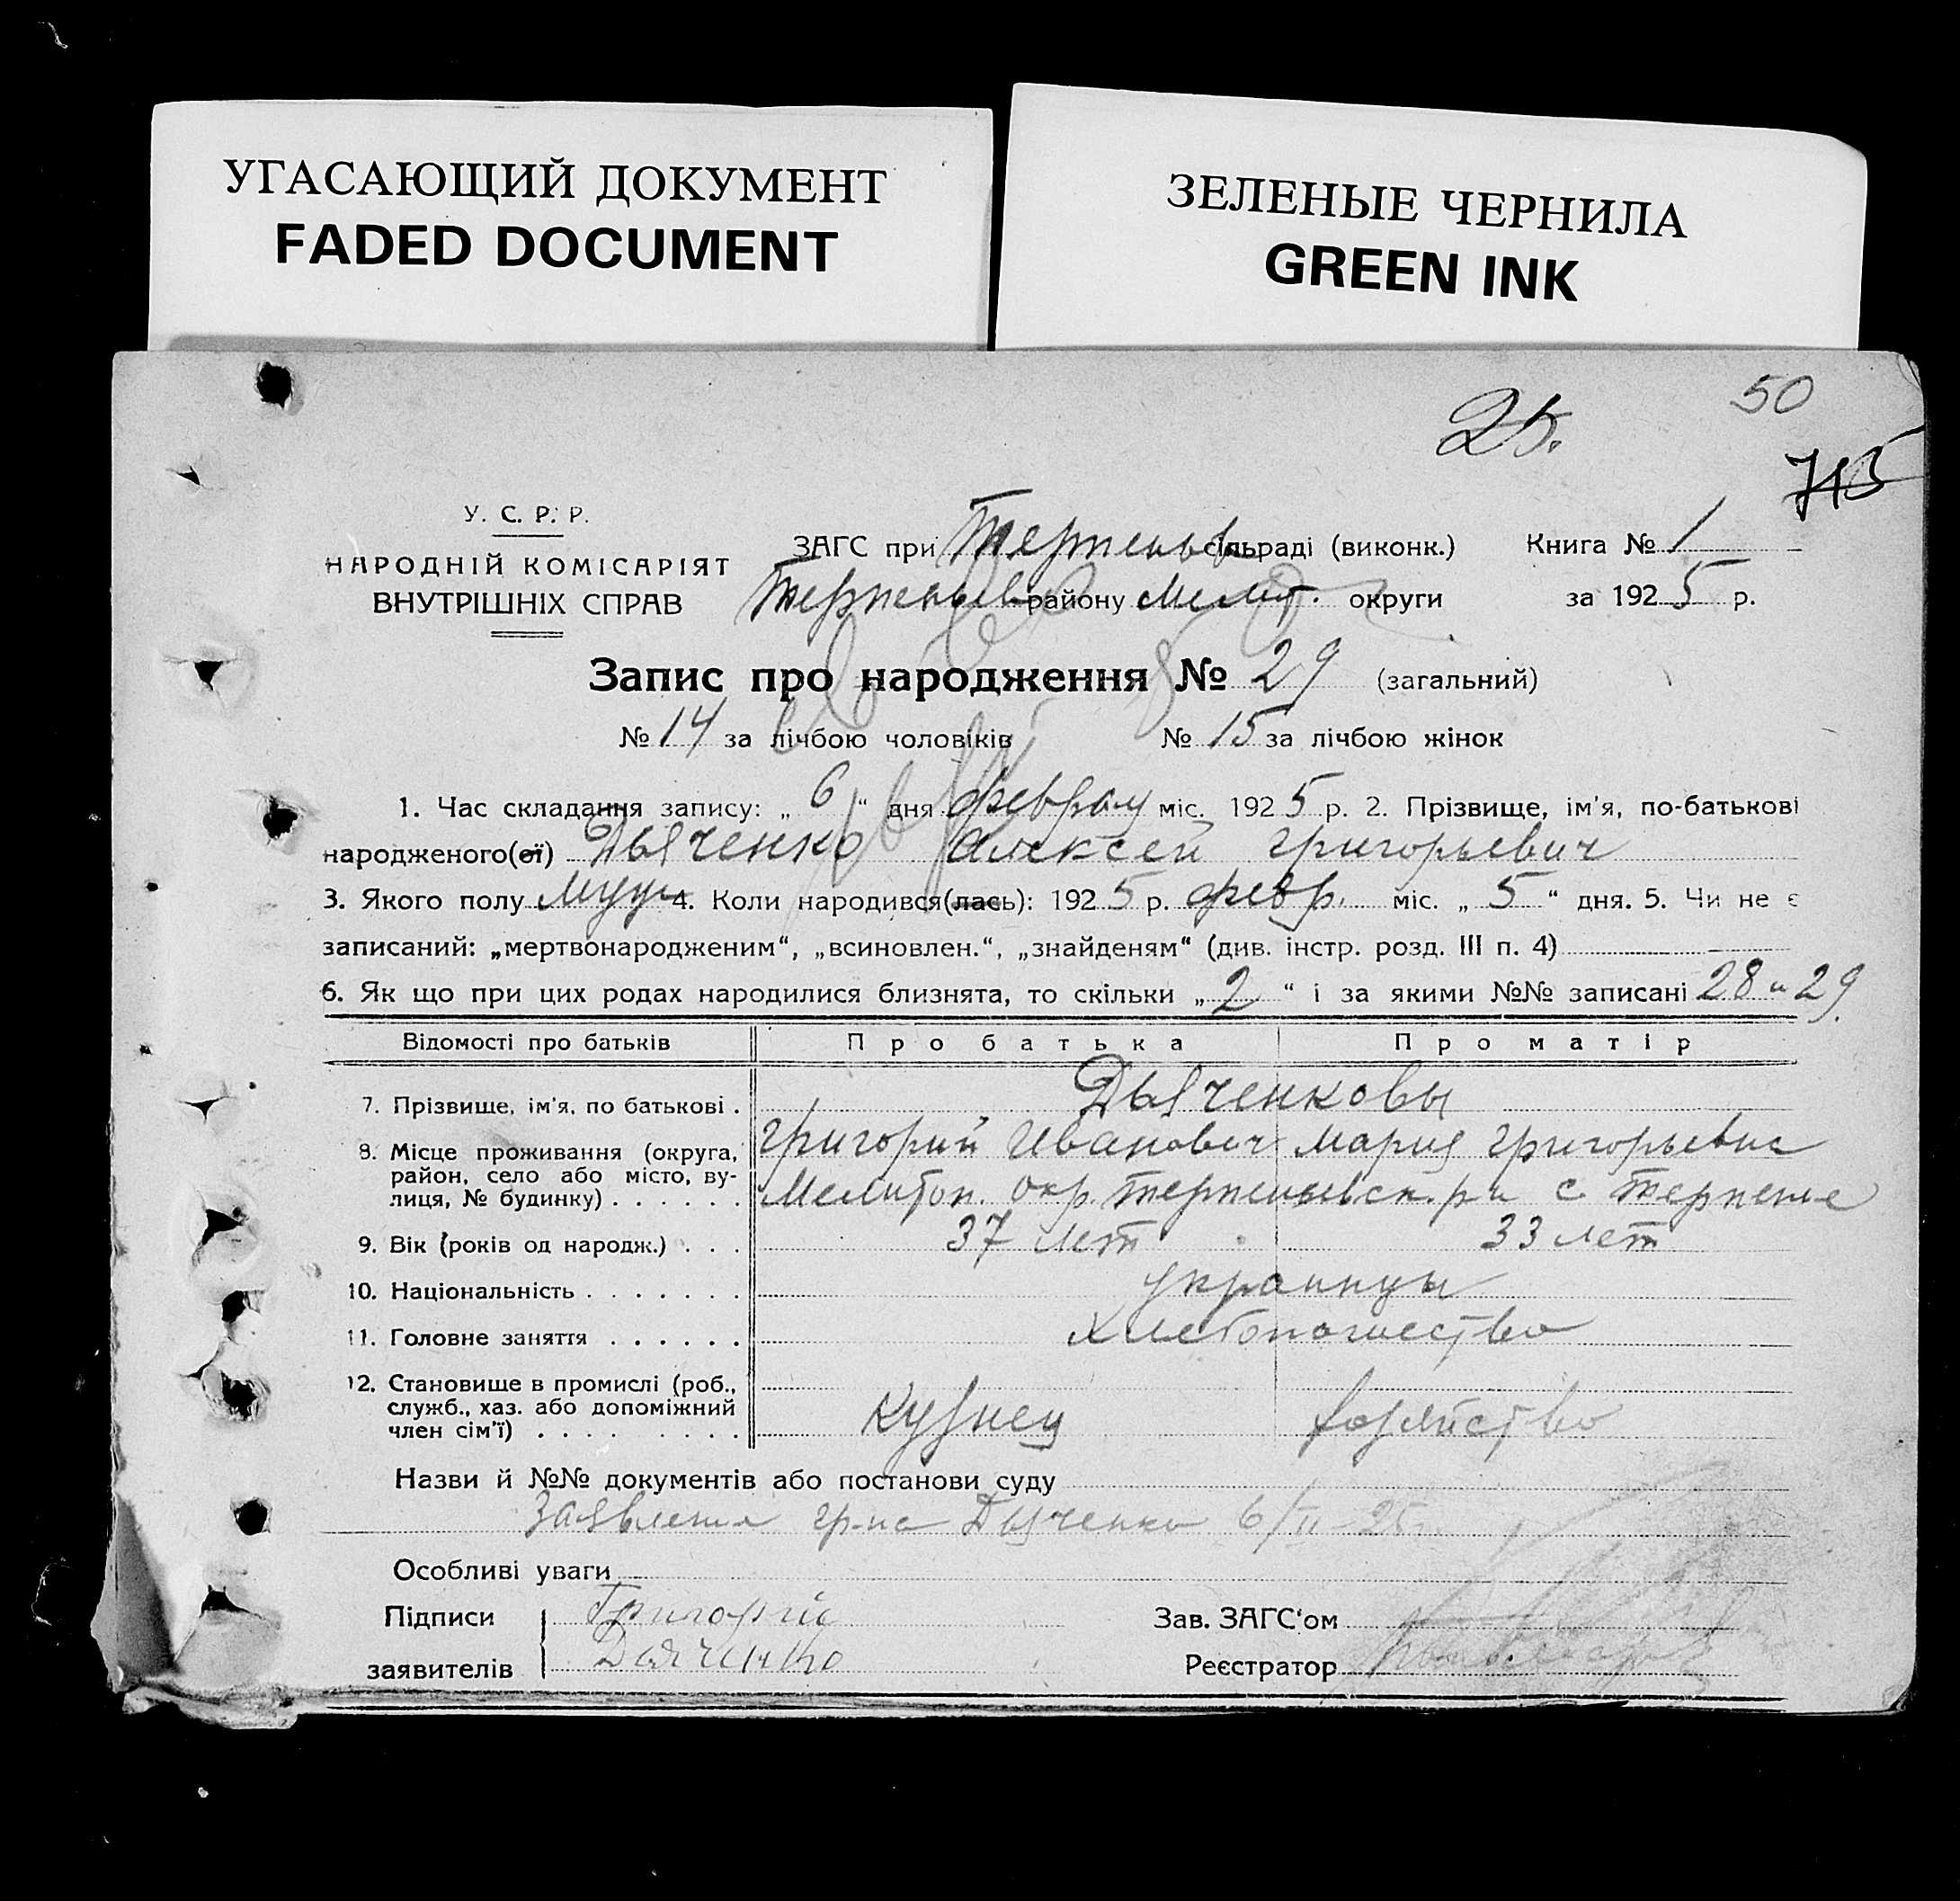 УГАСАЮЩИЙ ДОКУМЕНТ
FADED DOCUMENT
ЗЕЛЕНЫЕ ЧЕРНИЛА
GREEN INK
50
25.
715
У. С. Р. Р.
НАРОДНІЙ КОМІСАРІЯТ
ВНУТРІШНІХ СПРАВ
ЗАГС при Терпеньев сільраді (виконк.) Книга № 1
Терпеньев району Мелит. округи за 1925 р.
Запис про народження № 29 (загальний)
№ 14 за лічбою чоловіків № 15 за лічбою жінок
1. Час складання запису: „ 6 “ дня февраля міс. 1925 р. 2. Прізвище, ім'я, по-батькові
народженого(ої) Дьяченко Алексей Григорьевич
3. Якого полу муж 4. Коли народився(лась): 1925 р. февр. міс. „ 5 “ дня. 5. Чи не є
записаний: „мертвонародженим“, „всиновлен.“, „знайденям“ (див. інстр. розд. III п. 4)
6. Як що при цих родах народилися близнята, то скільки „ 2 “ і за якими №№ записані 28 и 29.
Відомості про батьків Про батька Про матір
7. Прізвище, ім'я, по батькові . Дьяченковы
Григорий Иванович Мария Григорьевна
8. Місце проживання (округа, район, село або місто, вулиця, № будинку) . . . . . . Мелитоп. окр. Терпеньевск. р-н с. Терпенье
9. Вік (років од народж.) . . . 37 лет 33 лет
10. Національність . . . . . . . украинцы
11. Головне заняття . . . . . . хлебопашество
12. Становище в промислі (роб.,
служб., хаз. або допоміжний
член сім'ї) . . . . . . . . . Кузнец хозяйство
Назви й №№ документів або постанови суду
Заявление гр-на Дьяченко 6/II-25
Особливі уваги
Підписи Григорій
заявителів Дяченко
Зав. ЗАГС'ом
Реєстратор